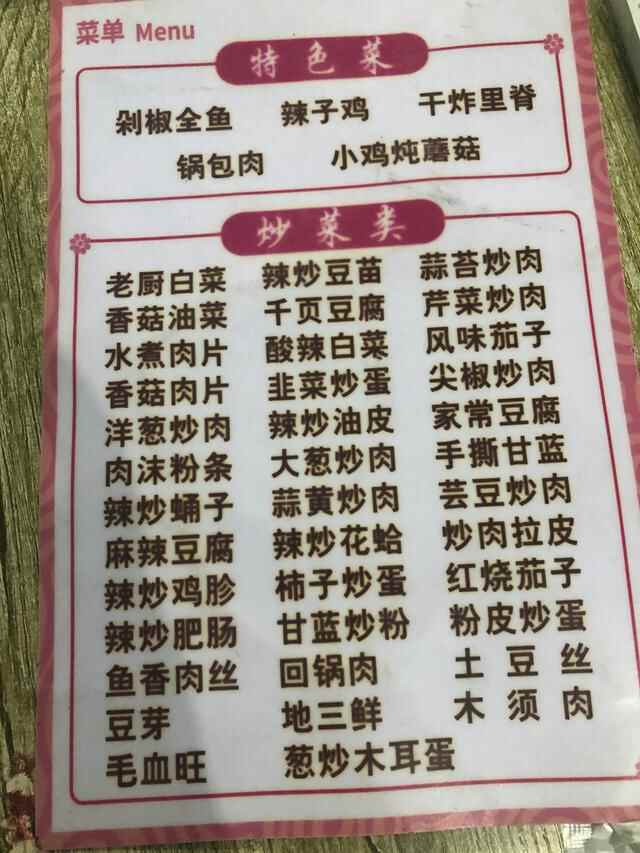 菜单 Menu
特色菜
剁椒全鱼 辣子鸡 干炸里脊
锅包肉 小鸡炖蘑菇
炒菜类
老厨白菜 辣炒豆苗 蒜苔炒肉
香菇油菜 千页豆腐 芹菜炒肉
水煮肉片 酸辣白菜 风味茄子
香菇肉片 韭菜炒蛋 尖椒炒肉
洋葱炒肉 辣炒油皮 家常豆腐
肉沫粉条 大葱炒肉 手撕甘蓝
辣炒蛹子 蒜黄炒肉 芸豆炒肉
麻辣豆腐 辣炒花蛤 炒肉拉皮
辣炒鸡胗 柿子炒蛋 红烧茄子
辣炒肥肠 甘蓝炒粉 粉皮炒蛋
鱼香肉丝 回锅肉 土豆丝
豆芽 地三鲜 木须肉
毛血旺 葱炒木耳蛋